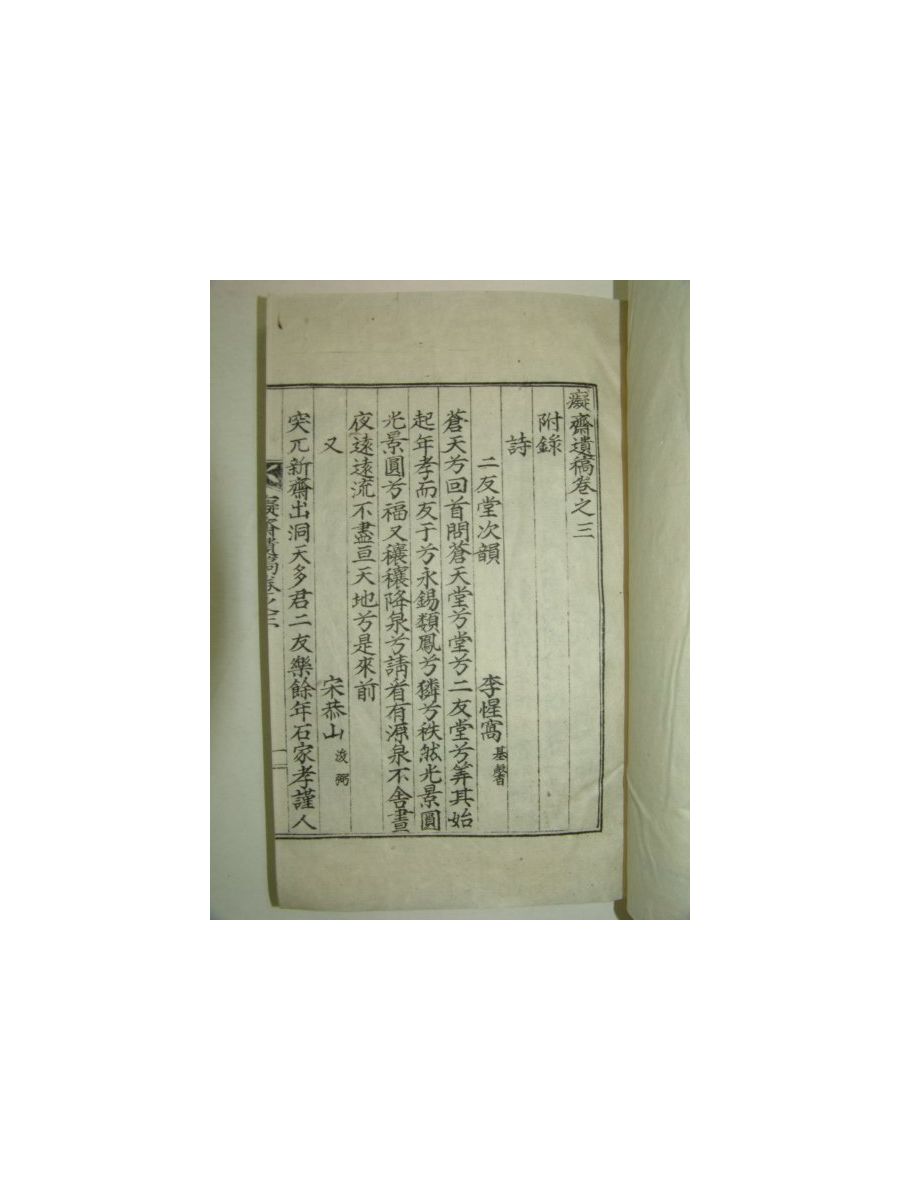 癡齋遺稿卷之三
附錄
詩
二友堂次韻 李惺窩 基馨
蒼天兮回首問蒼天堂兮堂兮二友堂兮筭其始
起年孝而友于兮永錫類鳳兮獜兮秩然光景圓
光景圓兮福又穰穰降泉兮請看有源泉不舍晝
夜遠遠流不盡亘天地兮是來前
又 宋恭山 浚弼
突兀新齋出洞天多君二友樂餘年石家孝謹人
癡齋遺稿卷之三